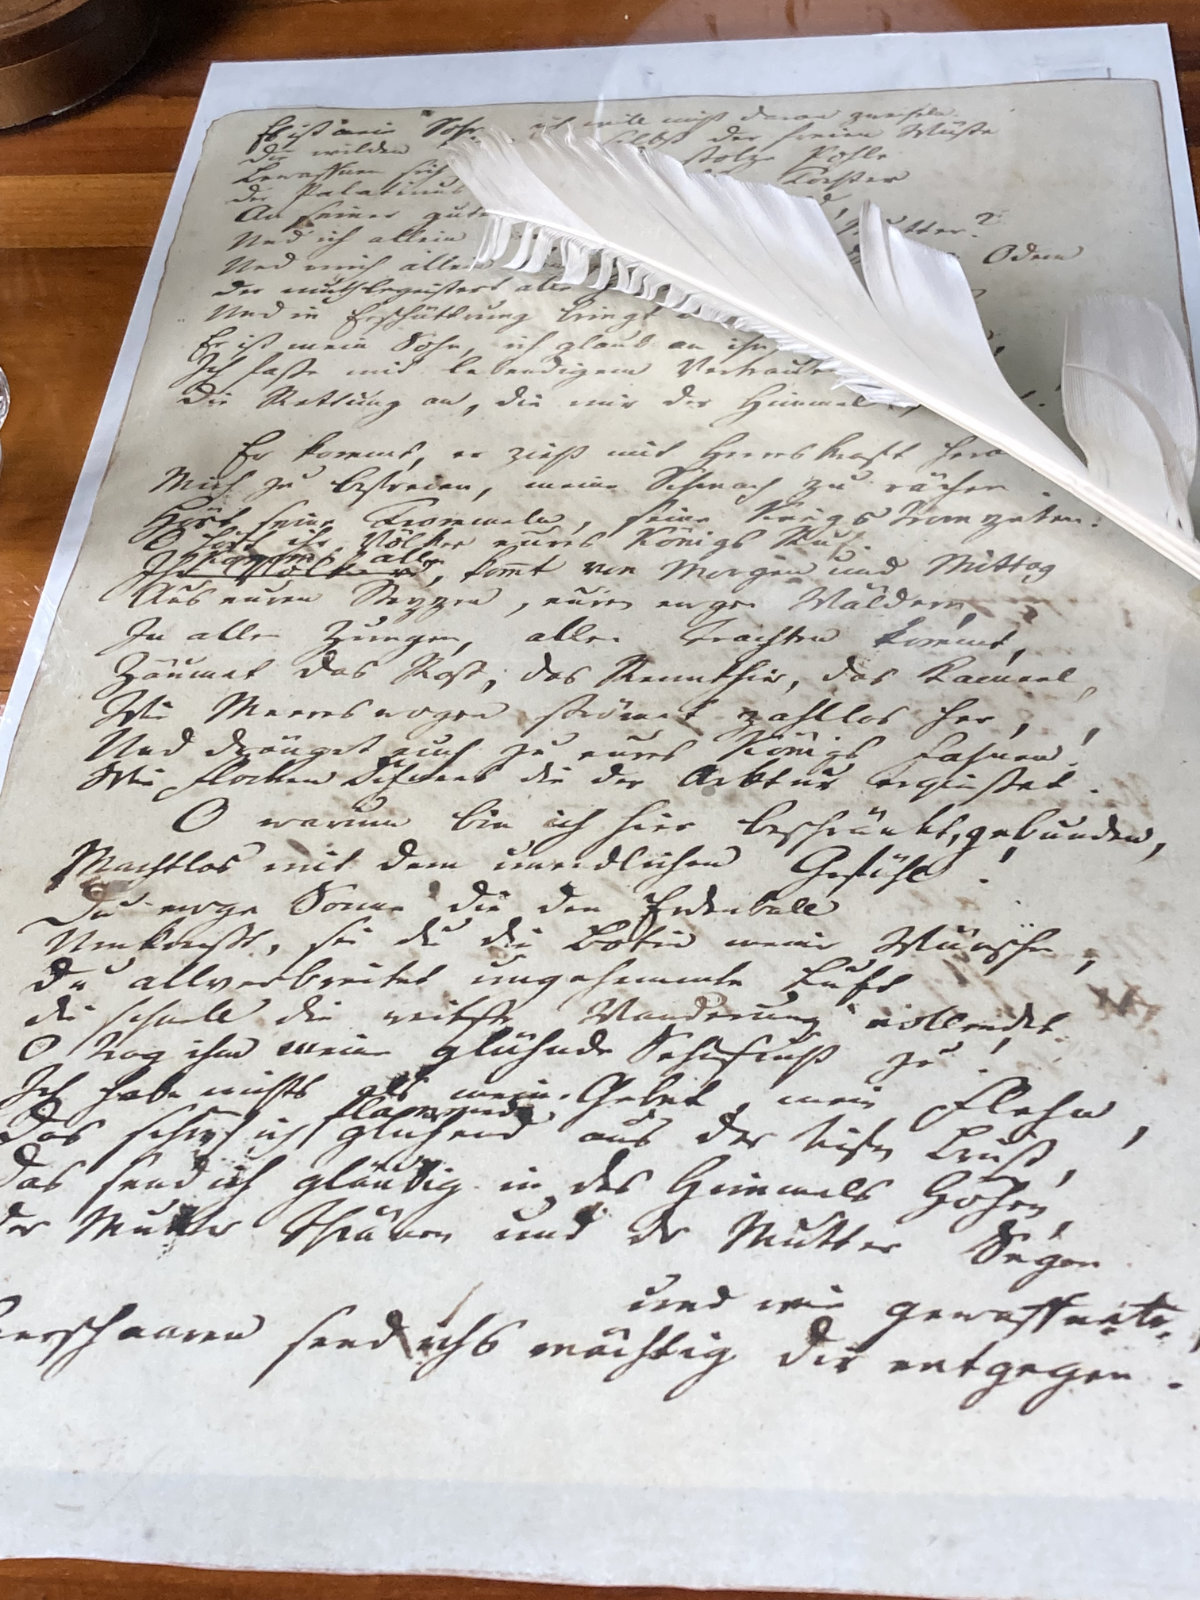 Es ist mein Sohn, ich will nicht daran zweifeln.
Die wilden selbst der freien Wüste
Bewaffnen sich stolze Pohle
Der Palatinus Tochter
An seiner guten
Und ich allein Mutter?
Und mich allein Odem
Der alle
Und in Erschütterung bringt
Er ist mein Sohn, ich glaub an ihn
Ich fasse mit lebendigem Vertrauen
Die Rettung an, die mir der Himmel
Er kommt, er zieht mit Heereskraft heran
Mich zu befreien, meine Schmach zu rächen.
Hört seine Trommeln, seine Kriegstrompeten!
O hört ihr Völker eures Königs Ruf!
kommt alle, kommt von Morgen und Mittag
Aus euren Steppen, euren ewgen Wäldern,
In allen Zungen, allen Trachten kommt,
Zäumet das Roß, das Rennthier, das Kameel,
Wie Meereswogen strömet zahllos her,
Und dränget euch zu eures Königs Fahnen!
Wie Flocken Schnees die der Arktur ergießet.
O warum bin ich hier beschränkt, gebunden,
Machtlos mit dem unendlichen Gefühl!
Du ewge Sonne die den Erdenball
Umkreißt, sei du die Botin meiner Wünsche,
Du allverbreitet ungehemmte Luft
Die schnell die weitste Wanderung vollendet.
O trag ihm meine glühnde Sehnsucht zu!
Ich habe nichts als mein Gebet, mein Flehn,
flammend
Das schöpf ich glühend aus der tiefen Brust,
Das send ich gläubig in des Himmels Höhen,
Der Mutter Thränen und der Mutter Segen
und wie gewaffnete
Heerschaaren send ichs mächtig dir entgegen.